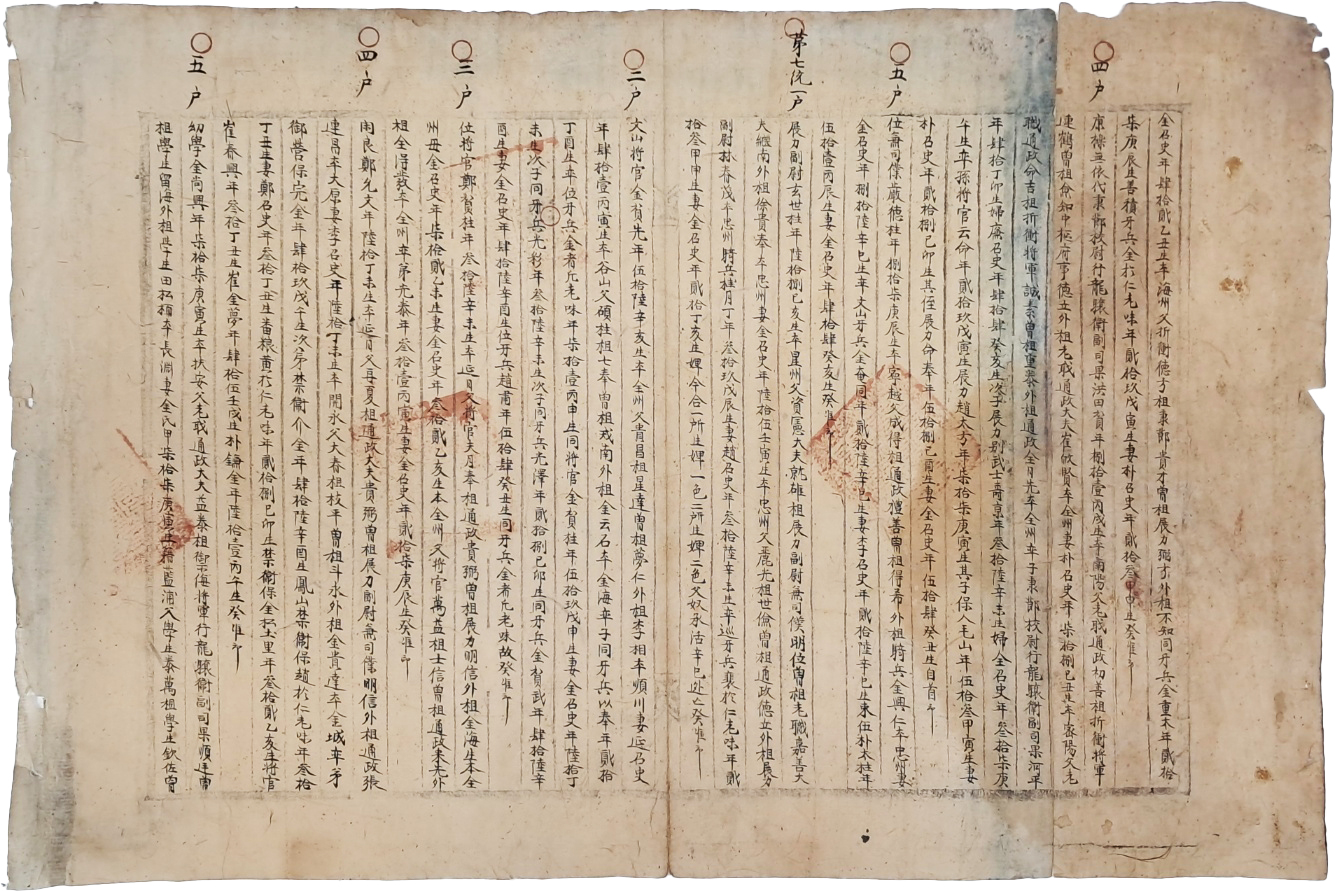 金召史年肆拾貳乙丑生本海州父折衝德才祖秉節貴才曾祖展力弼才外祖不知同牙兵金重木年貳拾
柒庚辰生善積牙兵金於仁老味年貳拾玖戊寅生妻朴召史年貳拾叄甲申生癸准印
四户
康據無依代秉節校尉行龍驤衛副司果洪田賀年捌拾壹丙戌生本南陽父老職通政初善祖折衝將軍
連鶴曾祖僉知中樞府事德立外祖老職通政大夫崔敏賢本全州妻朴召史年柒拾捌己丑生本密陽父老
職通政命吉祖折衝將軍誠泰曾祖重泰外祖通政金月先本全州率子秉節校尉行龍驤衛副司果河平
年肆拾丁卯生婦康召史年肆拾肆癸亥生次子展力別武士哥京年叄拾陸辛未生婦金召史年叄拾柒庚
午生率孫將官云命年貳拾玖戊寅生展力趙太才年柒拾柒庚寅生其子保人老山年伍拾叄甲寅生妻
朴召史年貳拾捌己卯生其侄展力命奉年伍拾捌己酉生妻金召史年伍拾肆癸丑生自首印
五户
位兼司僕嚴德牲年捌拾柒庚辰生本寧越父成得祖通政禮善曾祖得希外祖騎兵金興仁本忠州妻
金召史年捌拾陸辛巳生率文山牙兵金奄同年貳拾陸辛巳生妻李召史年貳拾陸辛巳生束伍朴太牲年
伍拾壹丙辰生妻金召史年肆拾肆癸亥生癸准印
第七統一户
展力副尉玄世牲年陸拾捌己亥生本星州父資憲大夫就雄祖展力副尉兼司僕明位曾祖老職嘉善大
夫繼南外祖徐貴奉本忠州妻金召史年陸拾伍壬寅生本忠州父麗光祖世儉曾祖通政德立外祖展力
副尉林春茂本忠州騎兵桂月丁年叄拾玖戊辰生妻趙召史年叄拾陸辛未生率巡牙兵裴於仁老味年貳
拾叄甲申生妻金召史年貳拾丁亥生婢今合一所生婢一色二所生婢二色父奴承活辛巳逃亡癸准印
二户
文山將官金賀先年伍拾陸辛亥生本全州父貴昌祖星達曾祖夢仁外祖李相本順川妻延召史
年肆拾壹丙寅生本谷山父碩牲祖七奉曾祖戒南外祖金云石本金海率子同牙兵以奉年貳拾
丁酉生率位牙兵金者斤老味年柒拾壹丙申生同將官金賀牲年伍拾玖戊申生妻金召史年陸拾丁
未生次子同牙兵光彩年叄拾陸辛未生次子同牙兵光澤年貳拾捌己卯生同牙兵金賀武年肆拾陸辛
酉生妻金召史年肆拾陸辛酉生位牙兵趙肅年伍拾肆癸丑生同牙兵金者斤老味故癸准印
三户
位將官鄭賀牲年叄拾陸辛未生本延日父將官天月奉祖通政貴弼曾祖展力明信外祖金海生本全
州母金召史年柒拾貳乙未生妻金召史年叄拾貳乙亥生本全州父將官萬益祖士信曾祖通政来光外
祖全得敦本全州率弟光泰年叄拾壹丙寅生妻金召史年貳拾柒庚辰生癸准印
四户
閑良鄭允文年陸拾丁未生本延日父再夏祖通政大夫貴弼曾祖展力副尉兼司僕明信外祖通政張
連昌本大原妻李召史年陸拾丁未生本開永父大春祖枝平曾祖斗永外祖金貴達本金城率弟
御營保完金年肆拾玖戊午生次弟禁衛介金年肆拾陸辛酉生鳳山禁衛保趙於仁老味年叄拾
丁丑生妻鄭召史年叄拾丁丑生畜粮黃於仁老味年貳拾捌己卯生禁衛保金於土里年叄拾貳乙亥生將官
崔春興年叄拾丁丑生崔金夢年肆拾伍壬戌生朴鎌金年陸拾壹丙午生癸准印
五户
幼學全尚興年柒拾柒庚寅生本扶安父老職通政大夫益泰祖御侮將軍行龍驤衛副司果順達曾
祖學生留海外祖學生田弘積本長淵妻全氏甲柒拾柒庚寅生籍藍浦父學生泰萬祖學生欽佐曾